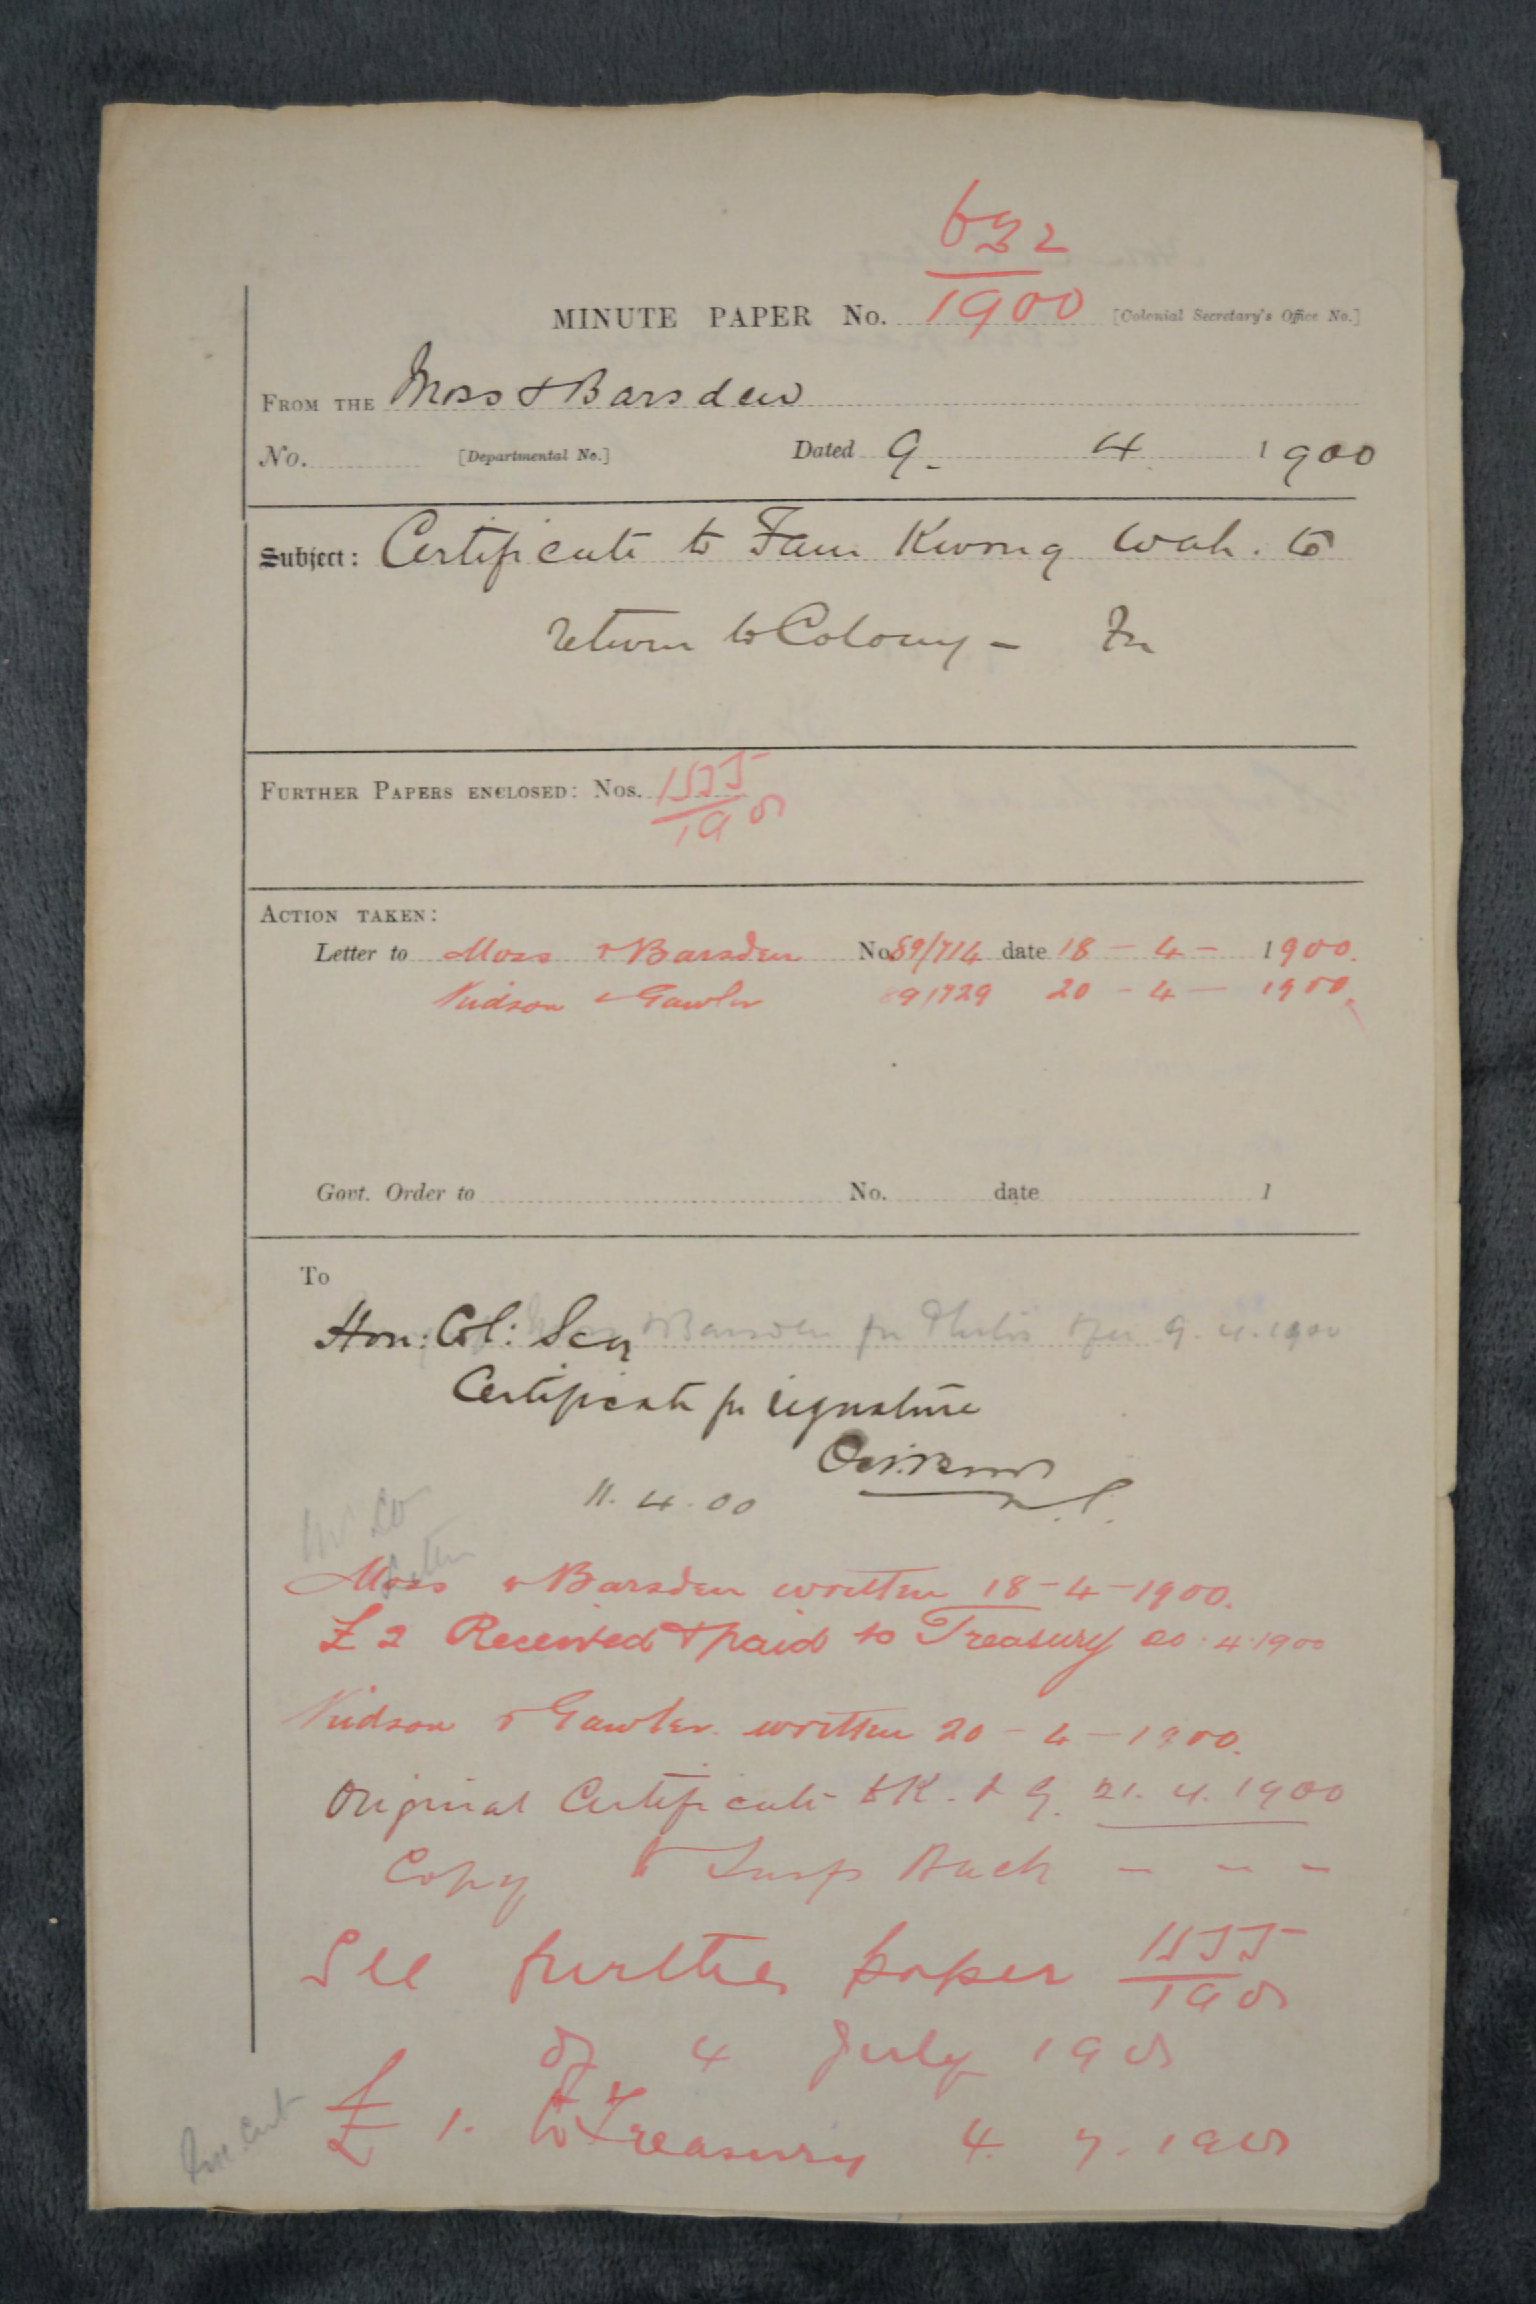 632
1900
MINUTE PAPER No. [Colonial Secretary's Office No.]
FROM THE Moss & Barsden
No. [Departmental No.] Dated 9. 4 1900
Subject: Certificate to Fam Kwong Wah. to
return to Colony - For
FURTHER PAPERS ENCLOSED: Nos. 1555
1900
ACTION TAKEN:
Letter to Moss & Barsden No. 89/714 date 18 - 4 - 1900.
Kidson & Gawler 89/729 20 - 4 - 1900.
Govt. Order to No. date 1
To
Hon: Col: Secy
Moss & Barsden for 9.4.1900
Certificate for signature
11.4.00
Moss & Barsden written 18-4-1900.
£2 Received & paid to Treasury 20.4.1900
Kidson & Gawler written 20-4-1900.
Original Certificate to K. & G. 21.4.1900
Copy to Insp - - -
See further paper 1555
1900
of 4 July 1900
£1. to Treasury 4.7.1900